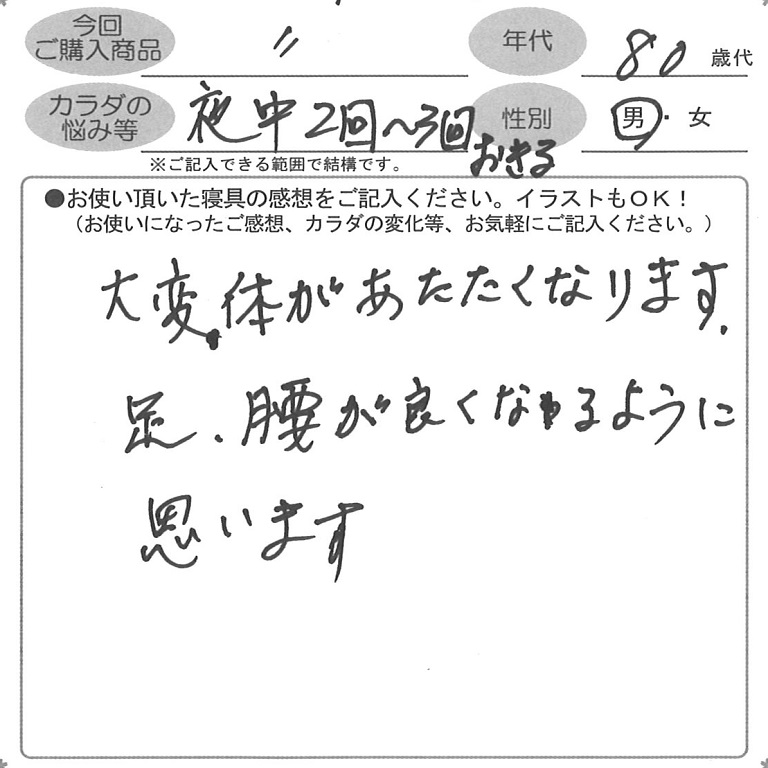 今回
ご購入商品 〃 年代 80 歳代
カラダの
悩み等 夜中2回〜3回おきる 性別 男・女
※ご記入できる範囲で結構です。
●お使い頂いた寝具の感想をご記入ください。イラストもOK!
(お使いになったご感想、カラダの変化等、お気軽にご記入ください。)
大変体があたたくなります.
足、腰が良くなるように
思います